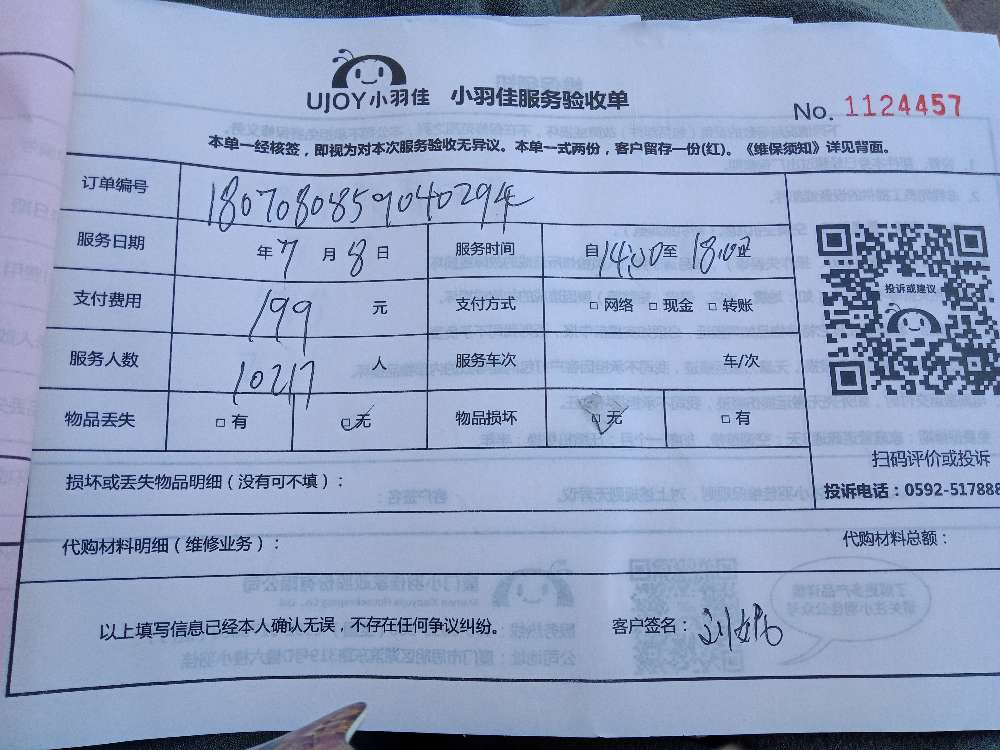 UJOY小羽佳 小羽佳服务验收单
No. 1124457
本单一经核签，即视为对本次服务验收无异议。本单一式两份，客户留存一份(红)。《维保须知》详见背面。
订单编号 180708085904029
服务日期 年 7 月 8 日 服务时间 自 14:00 至 18:00 止
支付费用 199 元 支付方式 □ 网络 □ 现金 □ 转账
投诉或建议
服务人数 10217 人 服务车次 车/次
物品丢失 □ 有 ☑ 无 物品损坏 ☑ 无 □ 有
扫码评价或投诉
损坏或丢失物品明细（没有可不填）：
投诉电话：0592-517888
代购材料明细（维修业务）： 代购材料总额：
以上填写信息已经本人确认无误，不存在任何争议纠纷。 客户签名：刘